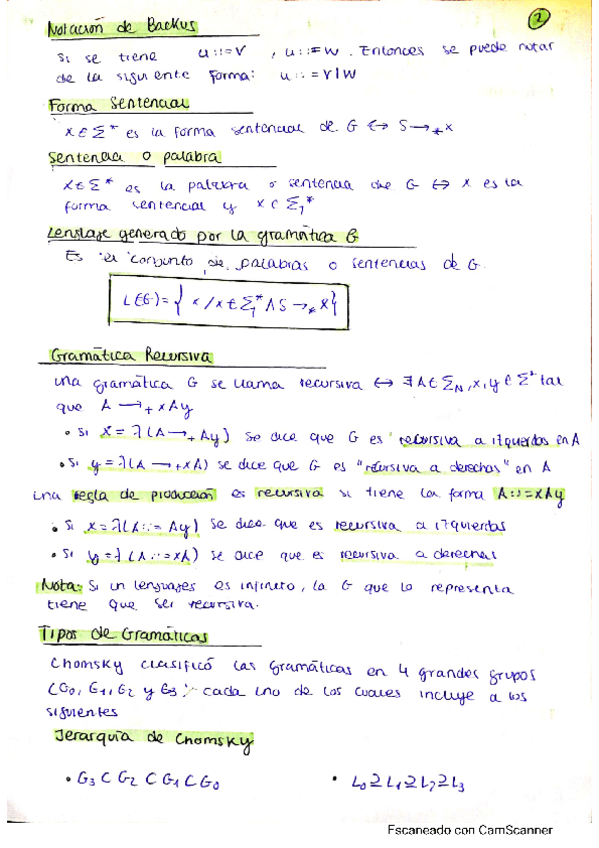 Notación de Backus
2
Si se tiene u::=v , u::=w. Entonces se puede notar
de la siguiente forma: u::=v|w
Forma Sentencial
x∈Σ* es la forma sentencial de G ↔ S→*x
Sentencia o palabra
x∈Σ* es la palabra o sentencia de G ↔ x es la
forma sentencial y x∈Σ₁*
Lenguaje generado por la gramática G
Es el conjunto de palabras o sentencias de G.
L(G)={ x/x∈Σ₁* ∧ S→*x}
Gramática Recursiva
una gramática G se llama recursiva ↔ ∃A∈Σ_N, x,y∈Σ* tal
que A→+ xAy
• Si x=λ(A→+ Ay) se dice que G es "recursiva a izquierdas en A
• Si y=λ(A→+xA) se dice que G es "recursiva a derechas" en A
una regla de producción es recursiva si tiene la forma A::=xAy
• Si x=λ(A::=Ay) se dice que es recursiva a izquierdas
• Si y=λ(A::=xA) se dice que es recursiva a derechas
Nota: Si un lenguajes es infinito, la G que lo representa
tiene que ser recursiva.
Tipos de Gramáticas
Chomsky clasificó las gramáticas en 4 grandes grupos
(G₀, G₁, G₂ y G₃): cada uno de los cuales incluye a los
siguientes
Jerarquía de Chomsky
• G₃ ⊂ G₂ ⊂ G₁ ⊂ G₀ • L₀⊇L₁⊇L₂⊇L₃
Escaneado con CamScanner